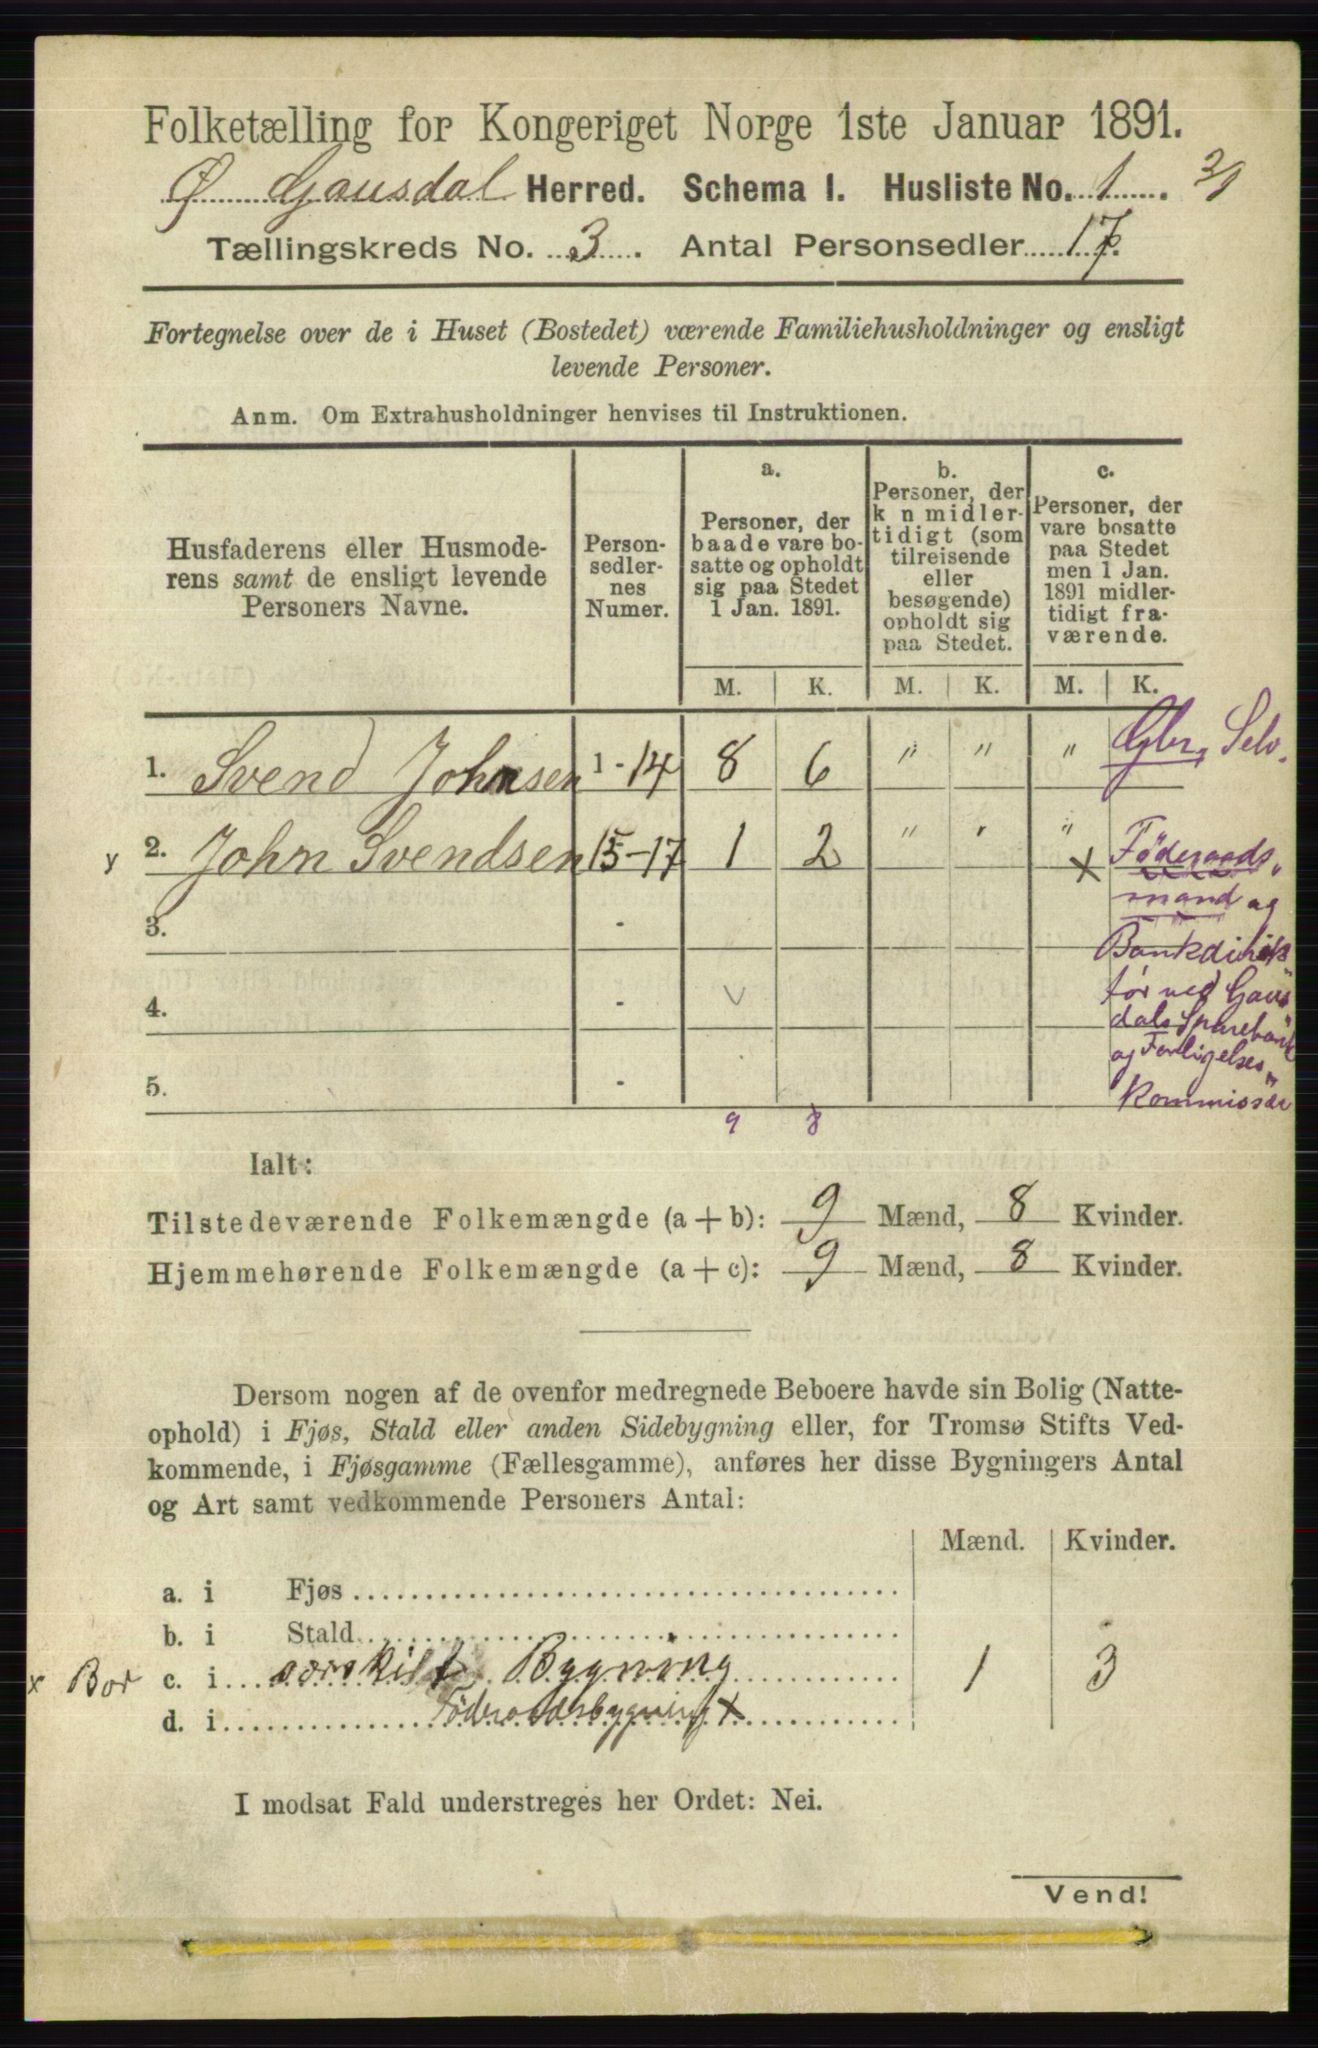 Folketælling for Kongeriget Norge 1ste Januar 1891.
Ø. Gausdal Herred. Schema I. Husliste No. 1.
Tællingskreds No. 3. Antal Personsedler 17.
Fortegnelse over de i Huset (Bostedet) værende Familiehusholdninger og ensligt
levende Personer.
Anm. Om Extrahusholdninger henvises til Instruktionen.
Husfaderens eller Husmode-
rens samt de ensligt levende
Personers Navne.
Person-
sedler-
nes
Numer.
a.
Personer, der
baade vare bo-
satte og opholdt
sig paa Stedet
1 Jan. 1891.
b.
Personer, der
k n midler-
tidigt (som
tilreisende
eller
besøgende)
opholdt sig
paa Stedet.
c.
Personer, der
vare bosatte
paa Stedet
men 1 Jan.
1891 midler-
tidigt fra-
værende.
M. K. M. K. M. K.
1. Svend Johnsen 1-14 8 6 " " " Gbr, Selv.
y 2. John Svendsen 15-17 1 2 " " " x Föderaads-
mand og
Bankdirik
tör ved Gaus
dals Sparebank
og Forligelses
kommissær
3. -
4. -
5. -
9 8
Ialt:
Tilstedeværende Folkemængde (a+b): 9 Mænd, 8 Kvinder.
Hjemmehørende Folkemængde (a+c): 9 Mænd, 8 Kvinder.
Dersom nogen af de ovenfor medregnede Beboere havde sin Bolig (Natte-
ophold) i Fjøs, Stald eller anden Sidebygning eller, for Tromsø Stifts Ved-
kommende, i Fjøsgamme (Fællesgamme), anføres her disse Bygningers Antal
og Art samt vedkommende Personers Antal:
Mænd. Kvinder.
a. i Fjøs
b. i Stald
x Bor c. i særskilt Bygning 1 3
d. i Föderaadsbygning x
I modsat Fald understreges her Ordet: Nei.
Vend!